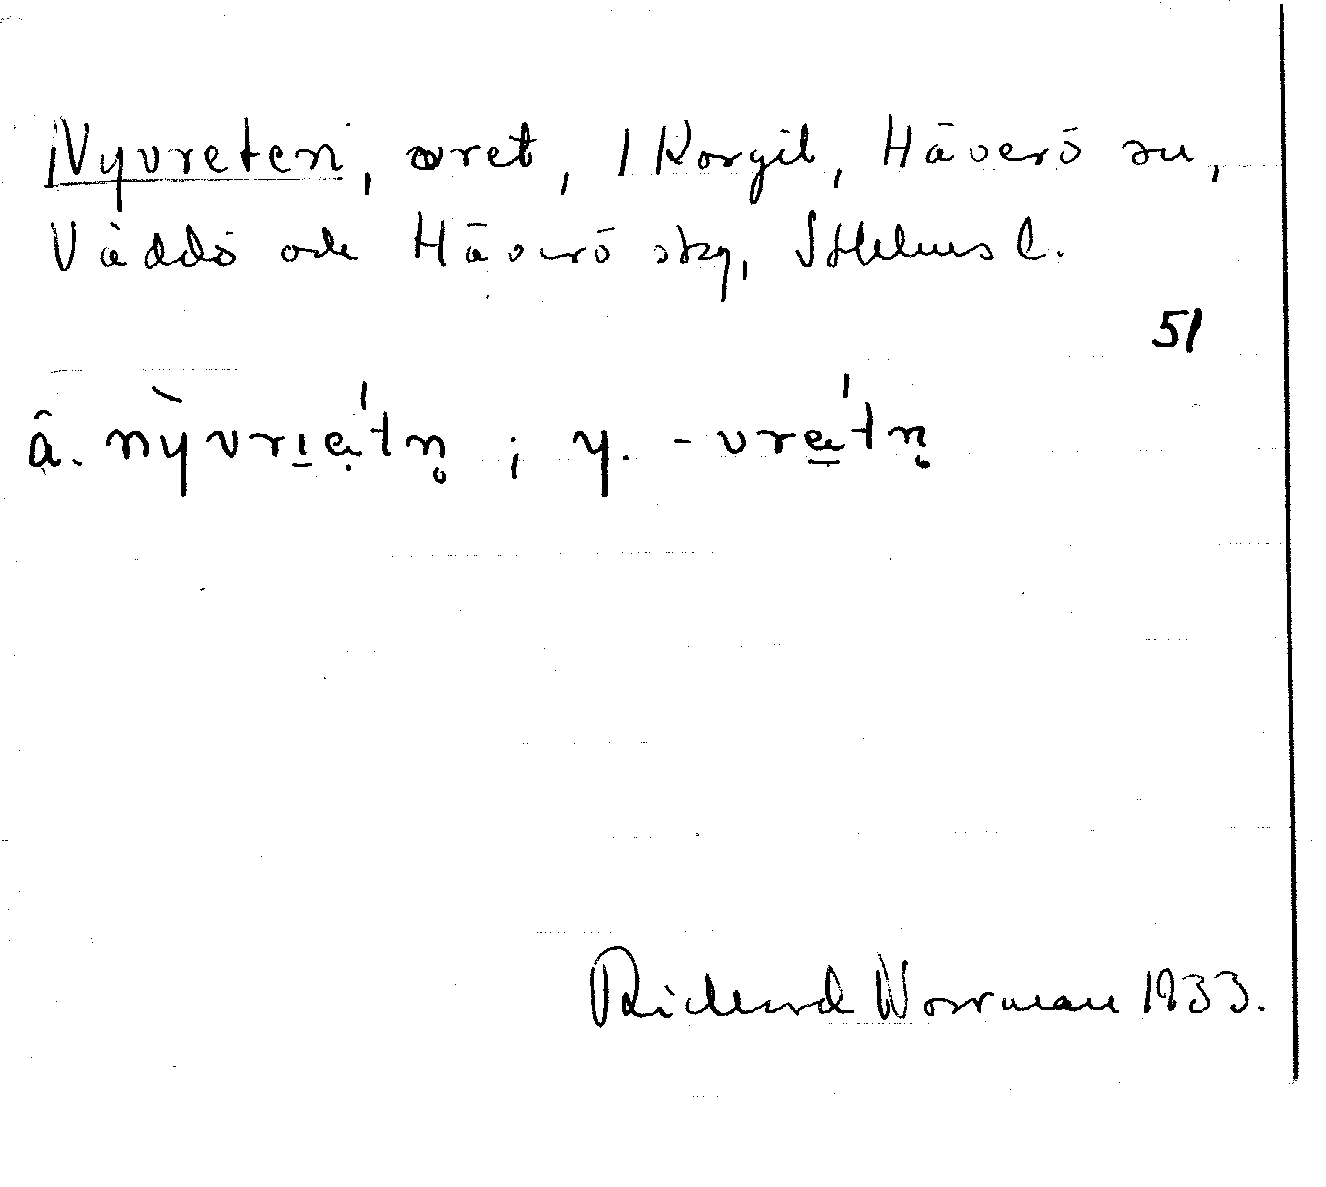 Nyvreten, vret, 1 Korgil, Häverö sn,
Väddö och Häverö skg, Sthlms l.
51
â. nỳvrı̲ẹ́tn̥ ; y. -vrǽ̲tn̥
Richard Norrman 1933.